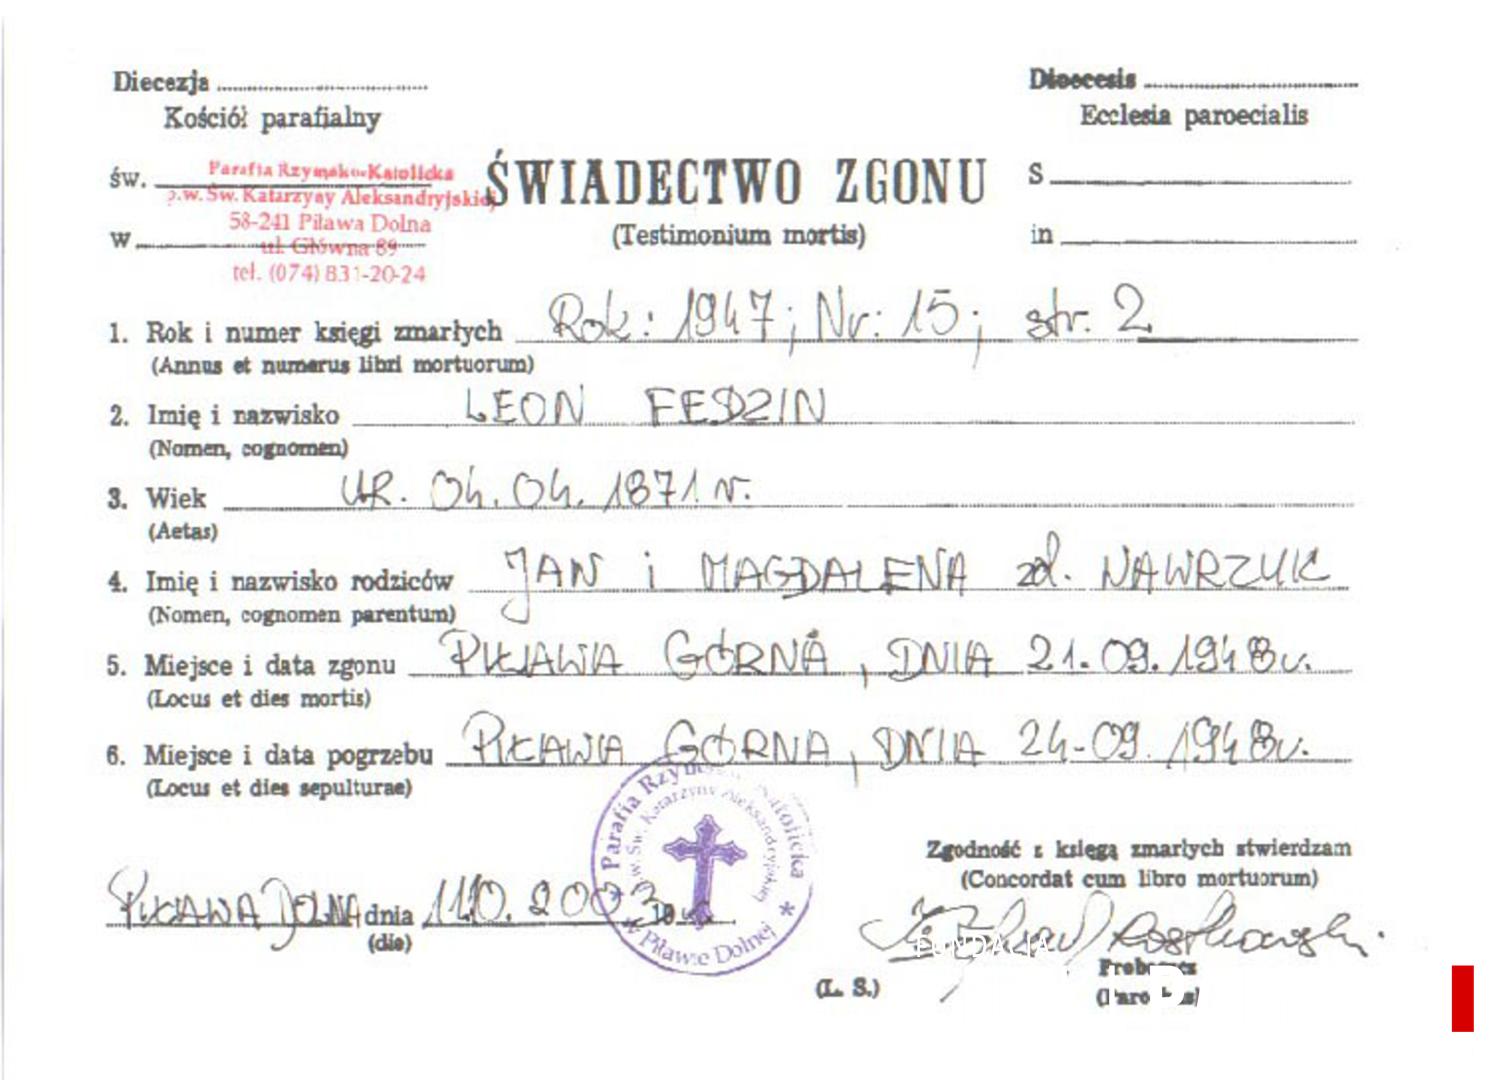 Diecezja
Kościół parafialny
Dioecesis
Ecclesia paroecialis
Parafia Rzymsko-Katolicka
św.
p.w. Św. Katarzyny Aleksandryjskiej
58-241 Piława Dolna
w
ul. Główna 89
tel. (074) 831-20-24
ŚWIADECTWO ZGONU
(Testimonium mortis)
S
in
1. Rok i numer księgi zmarłych Rok: 1947; Nr: 15; str. 2
(Annus et numerus libri mortuorum)
2. Imię i nazwisko LEON FEDZIN
(Nomen, cognomen)
3. Wiek UR. 04.04.1871 r.
(Aetas)
4. Imię i nazwisko rodziców JAN i MAGDALENA zd. NAWRZUK
(Nomen, cognomen parentum)
5. Miejsce i data zgonu PIŁAWA GÓRNA, DNIA 21.09.1948 r.
(Locus et dies mortis)
6. Miejsce i data pogrzebu PIŁAWA GÓRNA, DNIA 24-09.1948 r.
(Locus et dies sepulturae)
Parafia Rzymsko-Katolicka
p.w. Św. Katarzyny Aleksandryjskiej
w Piławie Dolnej
Zgodność z księgą zmarłych stwierdzam
(Concordat cum libro mortuorum)
PIŁAWA DOLNA dnia 2003 19
(die)
FUNDALIA
Proboszcz
(L. S.)
(Parochus)